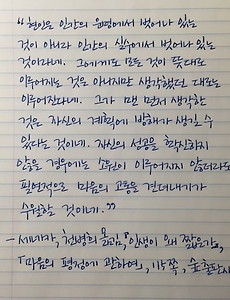 "현인은 인간의 운명에서 벗어나 있는
것이 아니라 인간의 실수에서 벗어나 있는
것이라네. 그에게도 모든 것이 뜻대로
이루어지는 것은 아니지만 생각했던 대로는
이루어진다네. 그가 맨 먼저 생각한
것은 자신의 계획에 방해가 생길 수
있다는 것이네. 자신의 성공을 확신하지
않을 경우에는 소원이 이루어지지 않더라도
필연적으로 마음의 고통을 견뎌내기가
수월할 것이네."
- 세네카, 천병희 옮김, 「인생이 왜 짧은가」,
「마음의 평정에 관하여」, 115쪽, 숲출판사